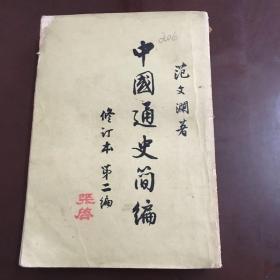 206
范文澜著
中國通史简编
修订本 第二编
張啓